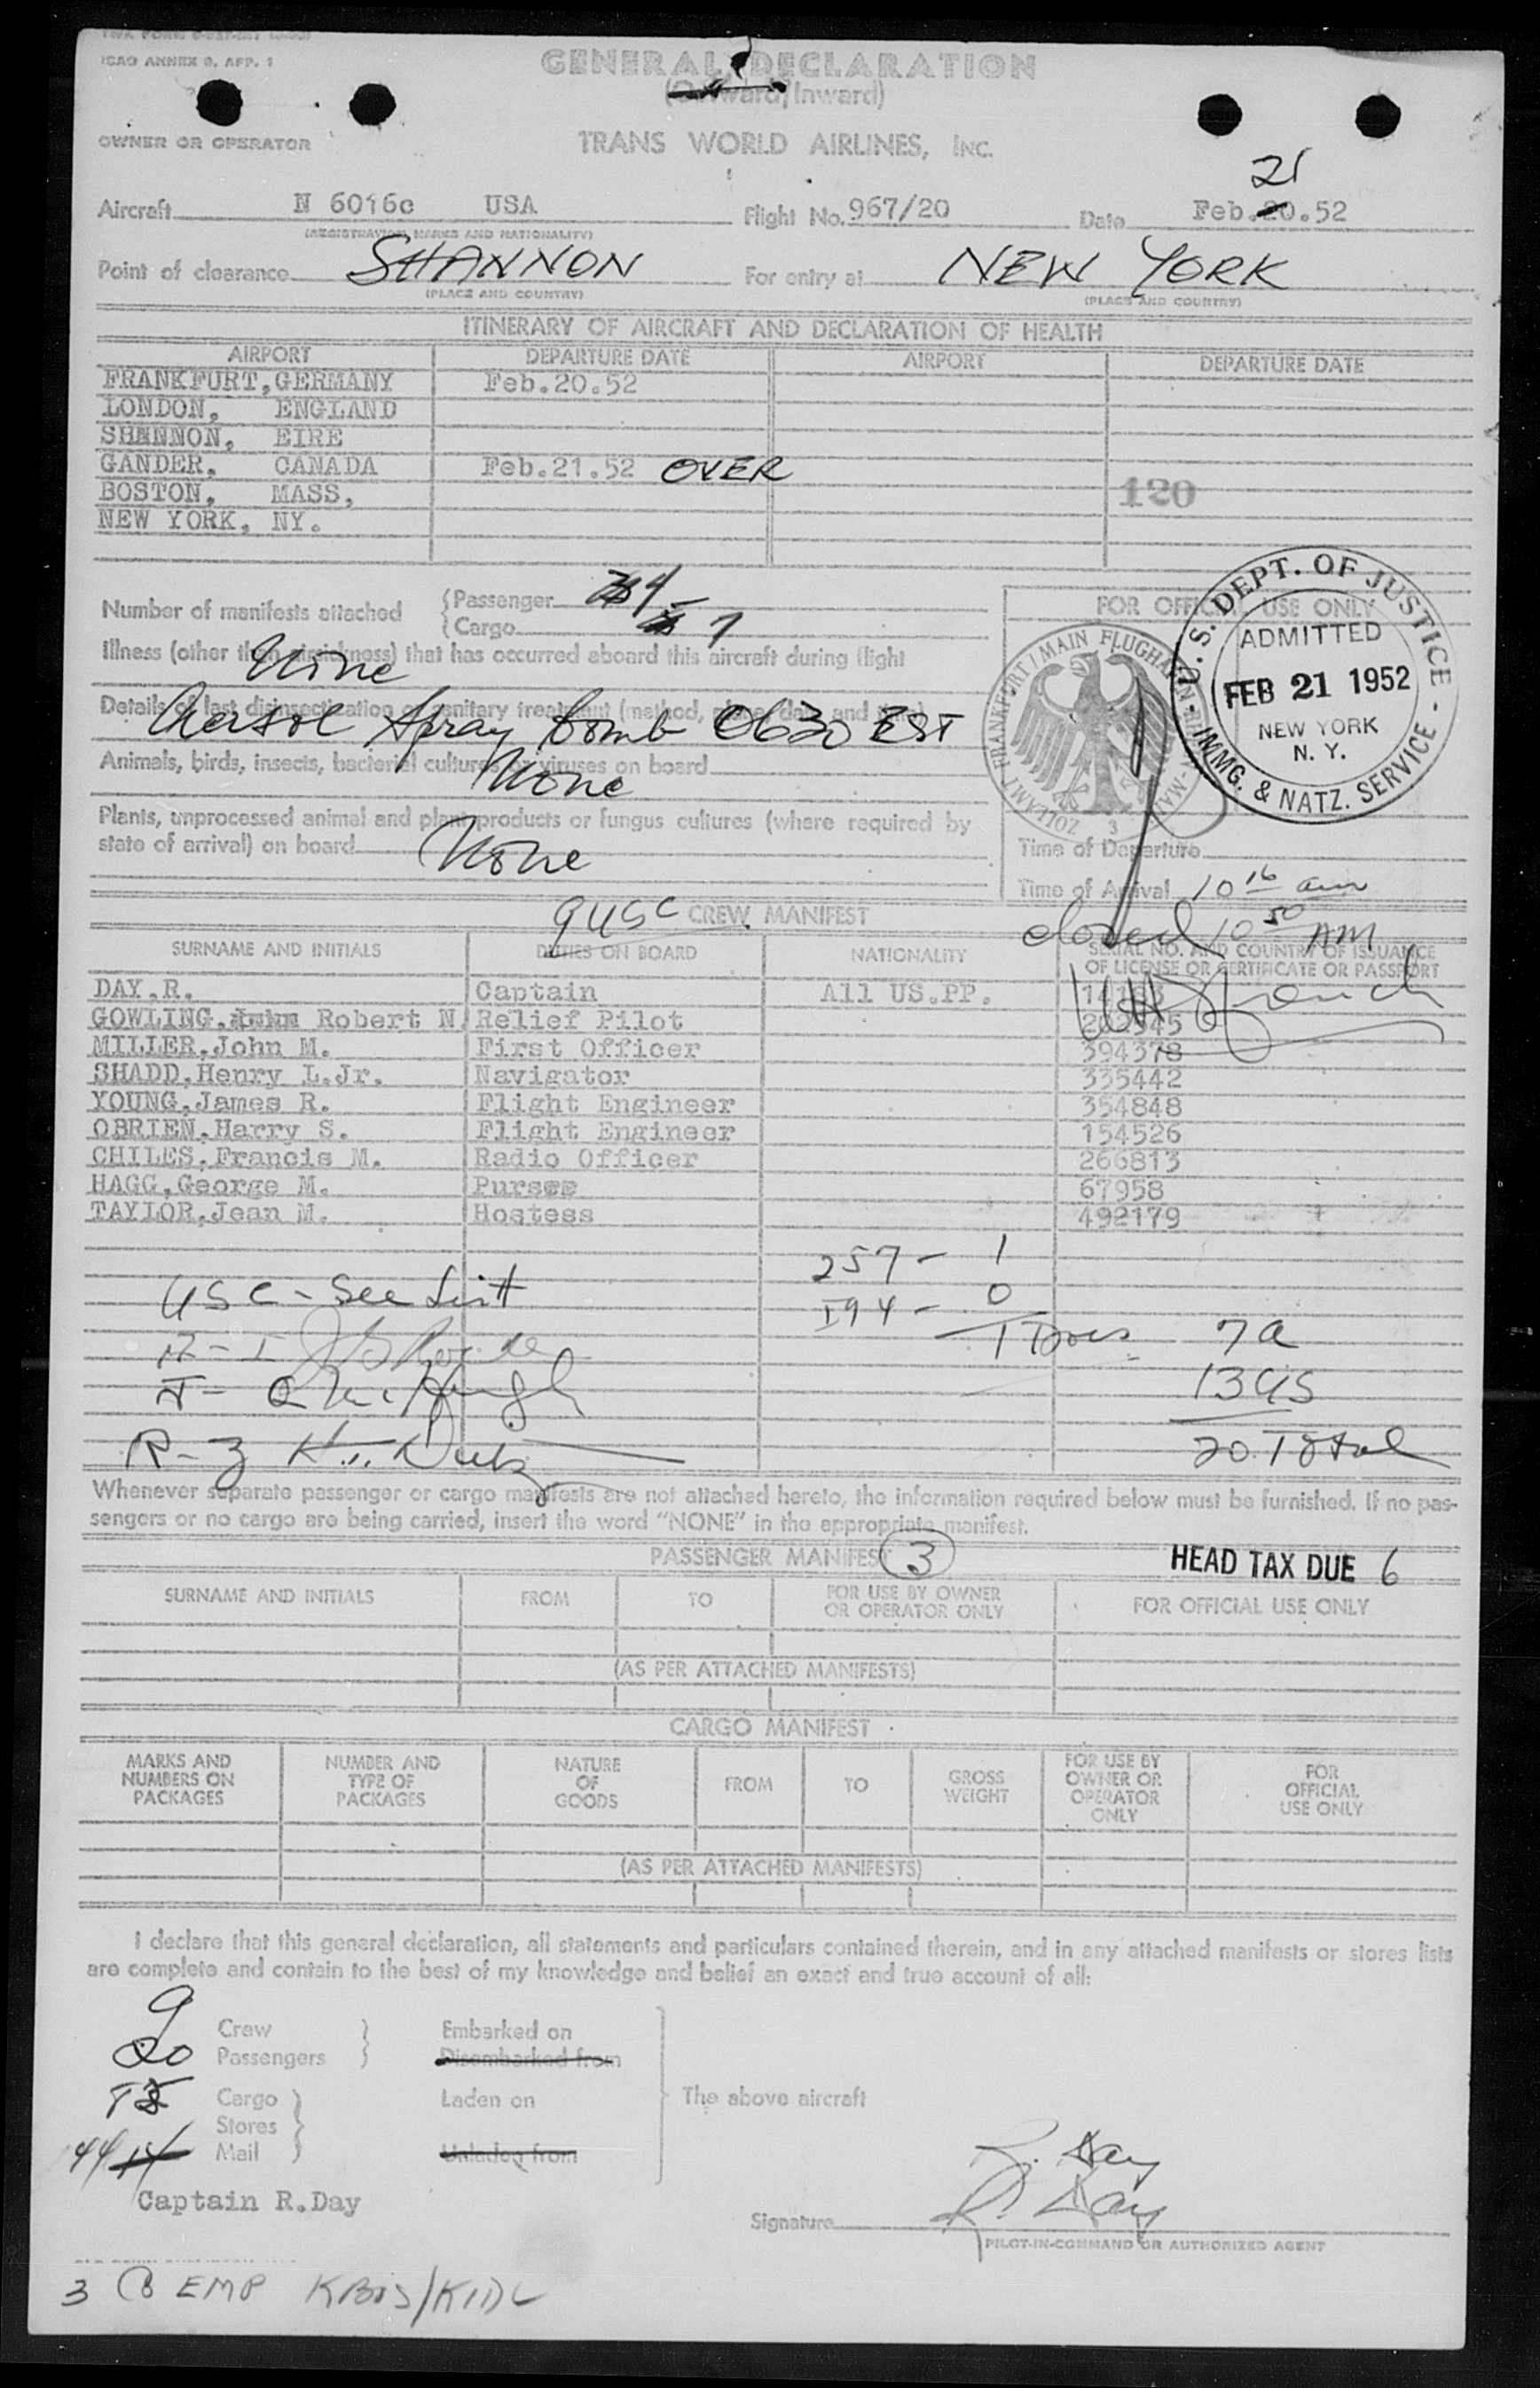 ICAO ANNEX 9, APP. 1
GENERAL DECLARATION
(Outward/Inward)
OWNER OR OPERATOR
TRANS WORLD AIRLINES, INC.
21
Aircraft N 6016c USA Flight No. 967/20 Date Feb.20.52
(REGISTRATION MARKS AND NATIONALITY)
Point of clearance SHANNON For entry at NEW YORK
(PLACE AND COUNTRY) (PLACE AND COUNTRY)
ITINERARY OF AIRCRAFT AND DECLARATION OF HEALTH
AIRPORT DEPARTURE DATE AIRPORT DEPARTURE DATE
FRANKFURT, GERMANY Feb.20.52
LONDON, ENGLAND
SHANNON, EIRE
GANDER, CANADA Feb.21.52 OVER
BOSTON, MASS, 120
NEW YORK, NY.
Number of manifests attached
Passenger
Cargo 1
Illness (other than airsickness) that has occurred aboard this aircraft during flight
None
Details of last disinsectisation or sanitary treatment (method, place, date and time)
Aersol Spray bomb 0630 EST
Animals, birds, insects, bacterial cultures or viruses on board
None
Plants, unprocessed animal and plant products or fungus cultures (where required by
state of arrival) on board None
FOR OFFICIAL USE ONLY
U.S. DEPT. OF JUSTICE
ADMITTED
FEB 21 1952
NEW YORK
N. Y.
IMMG. & NATZ. SERVICE
ZOLLAMT FRANKFURT/MAIN FLUGHAFEN RHEIN-MAIN
3
Time of Departure
Time of Arrival 10 16 am
closed 10 50 AM
9 USC CREW MANIFEST
SURNAME AND INITIALS DUTIES ON BOARD NATIONALITY SERIAL NO. AND COUNTRY OF ISSUANCE
OF LICENSE OR CERTIFICATE OR PASSPORT
DAY,R. Captain All US.PP.
GOWLING, Robert N. Relief Pilot
MILLER,John M. First Officer 394378
SHADD,Henry L.Jr. Navigator 335442
YOUNG,James R. Flight Engineer 354848
OBRIEN,Harry S. Flight Engineer 154526
CHILES,Francis M. Radio Officer 266813
HAGG,George M. Purser 67958
TAYLOR,Jean M. Hostess 492179
257 - 1
USC - See List
I94 - 0
1 7a
13 US
R-3
20 Total
Whenever separate passenger or cargo manifests are not attached hereto, the information required below must be furnished. If no pas-
sengers or no cargo are being carried, insert the word "NONE" in the appropriate manifest.
PASSENGER MANIFEST 3 HEAD TAX DUE 6
SURNAME AND INITIALS FROM TO FOR USE BY OWNER
OR OPERATOR ONLY FOR OFFICIAL USE ONLY
(AS PER ATTACHED MANIFESTS)
CARGO MANIFEST
MARKS AND
NUMBERS ON
PACKAGES
NUMBER AND
TYPE OF
PACKAGES
NATURE
OF
GOODS
FROM
TO
GROSS
WEIGHT
FOR USE BY
OWNER OR
OPERATOR
ONLY
FOR
OFFICIAL
USE ONLY
(AS PER ATTACHED MANIFESTS)
I declare that this general declaration, all statements and particulars contained therein, and in any attached manifests or stores lists
are complete and contain to the best of my knowledge and belief an exact and true account of all:
9 Crew Embarked on
20 Passengers Disembarked from
Cargo Laden on The above aircraft
Stores
44 Mail Unladen from
R. Day
Captain R.Day
R. Day
Signature
PILOT-IN-COMMAND OR AUTHORIZED AGENT
3 EMP KBOS/KIDL